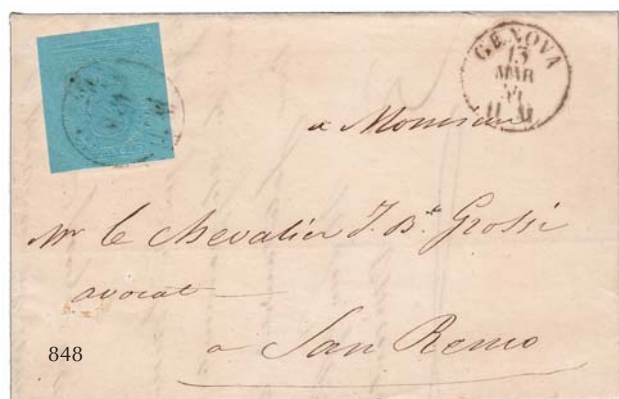 GENOVA
13
MAR
54
a Monsieur
Mr le Chevalier J. Bte Grossi
avocat
a San Remo
848